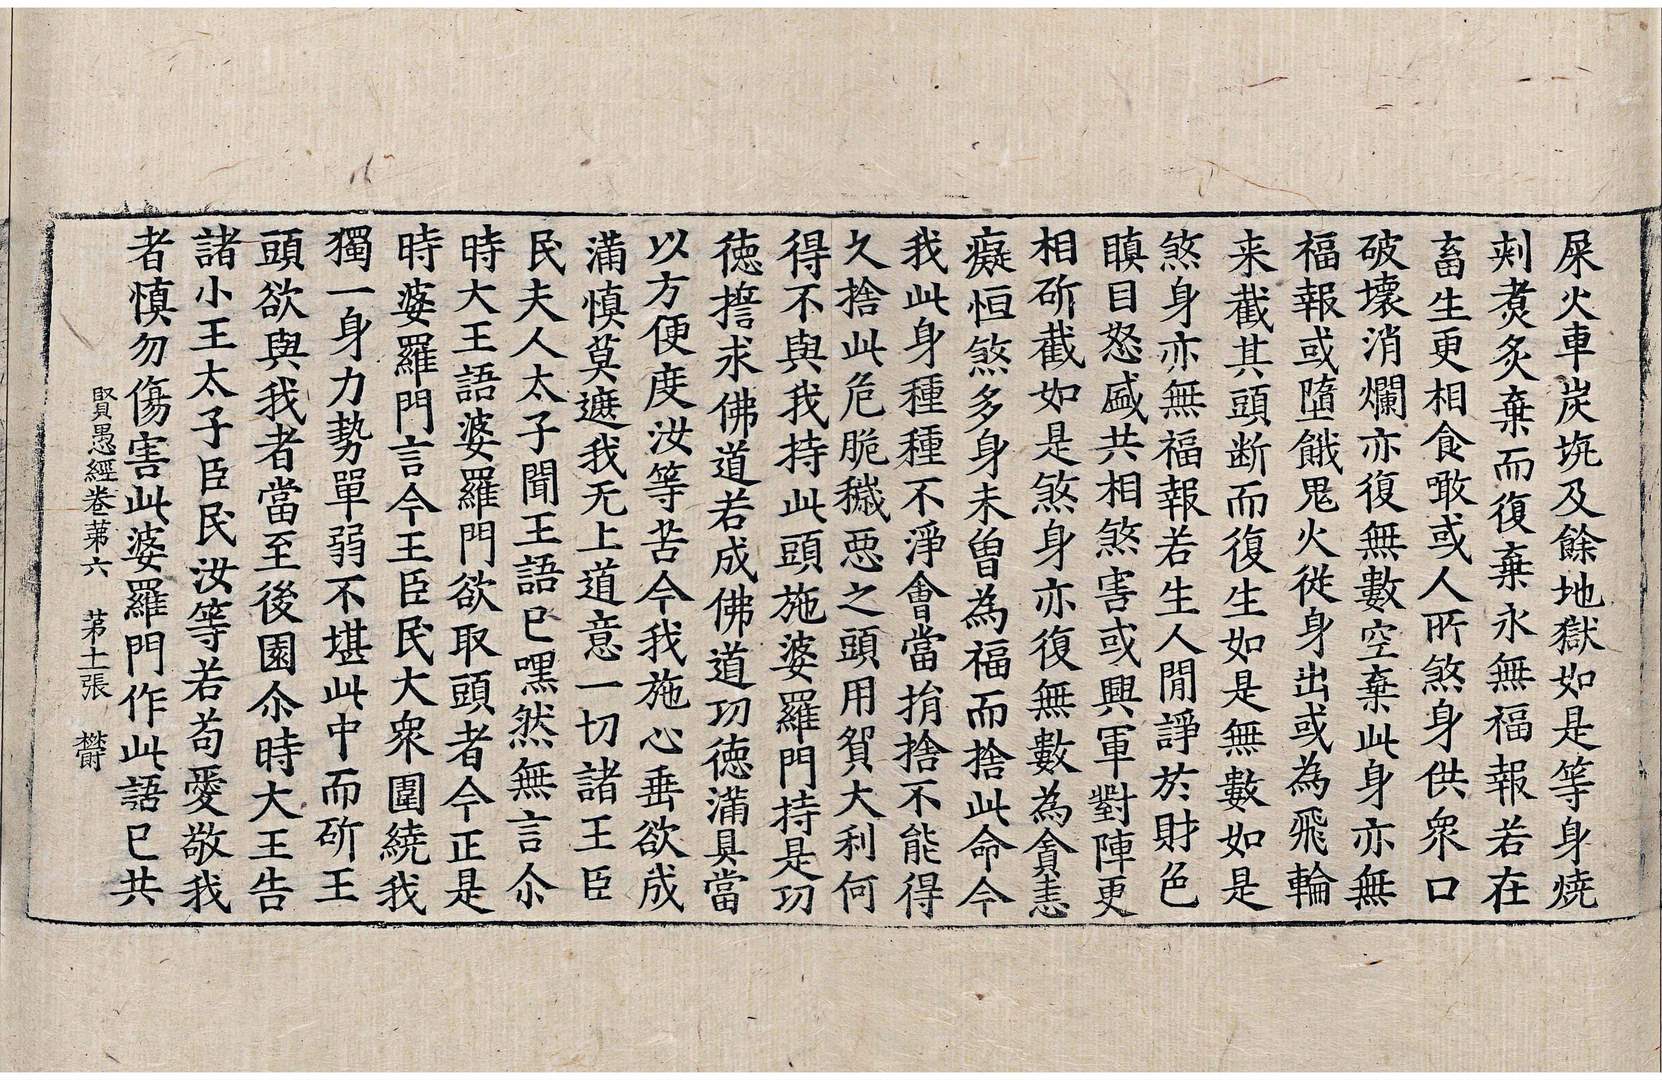 屎火車炭坑及餘地獄如是等身燒
刾煑炙棄而復棄永無福報若在
畜生更相食噉或人所煞身供衆口
破壞消爛亦復無數空棄此身亦無
福報或墮餓鬼火從身出或為飛輪
来截其頭断而復生如是無數如是
煞身亦無福報若生人閒諍於財色
瞋目怒盛共相煞害或興軍對陣更
相斫截如是煞身亦復無數為貪恚
癡恒煞多身未曾為福而捨此命今
我此身種種不淨會當捐捨不能得
久捨此危脆穢惡之頭用貿大利何
得不與我持此頭施婆羅門持是功
德誓求佛道若成佛道功德滿具當
以方便度汝等苦今我施心垂欲成
滿慎莫遮我无上道意一切諸王臣
民夫人太子聞王語已嘿然無言尒
時大王語婆羅門欲取頭者今正是
時婆羅門言今王臣民大衆圍繞我
獨一身力勢單弱不堪此中而斫王
頭欲與我者當至後園尒時大王告
諸小王太子臣民汝等若苟愛敬我
者慎勿傷害此婆羅門作此語已共
賢愚經卷苐六 苐十張 欝